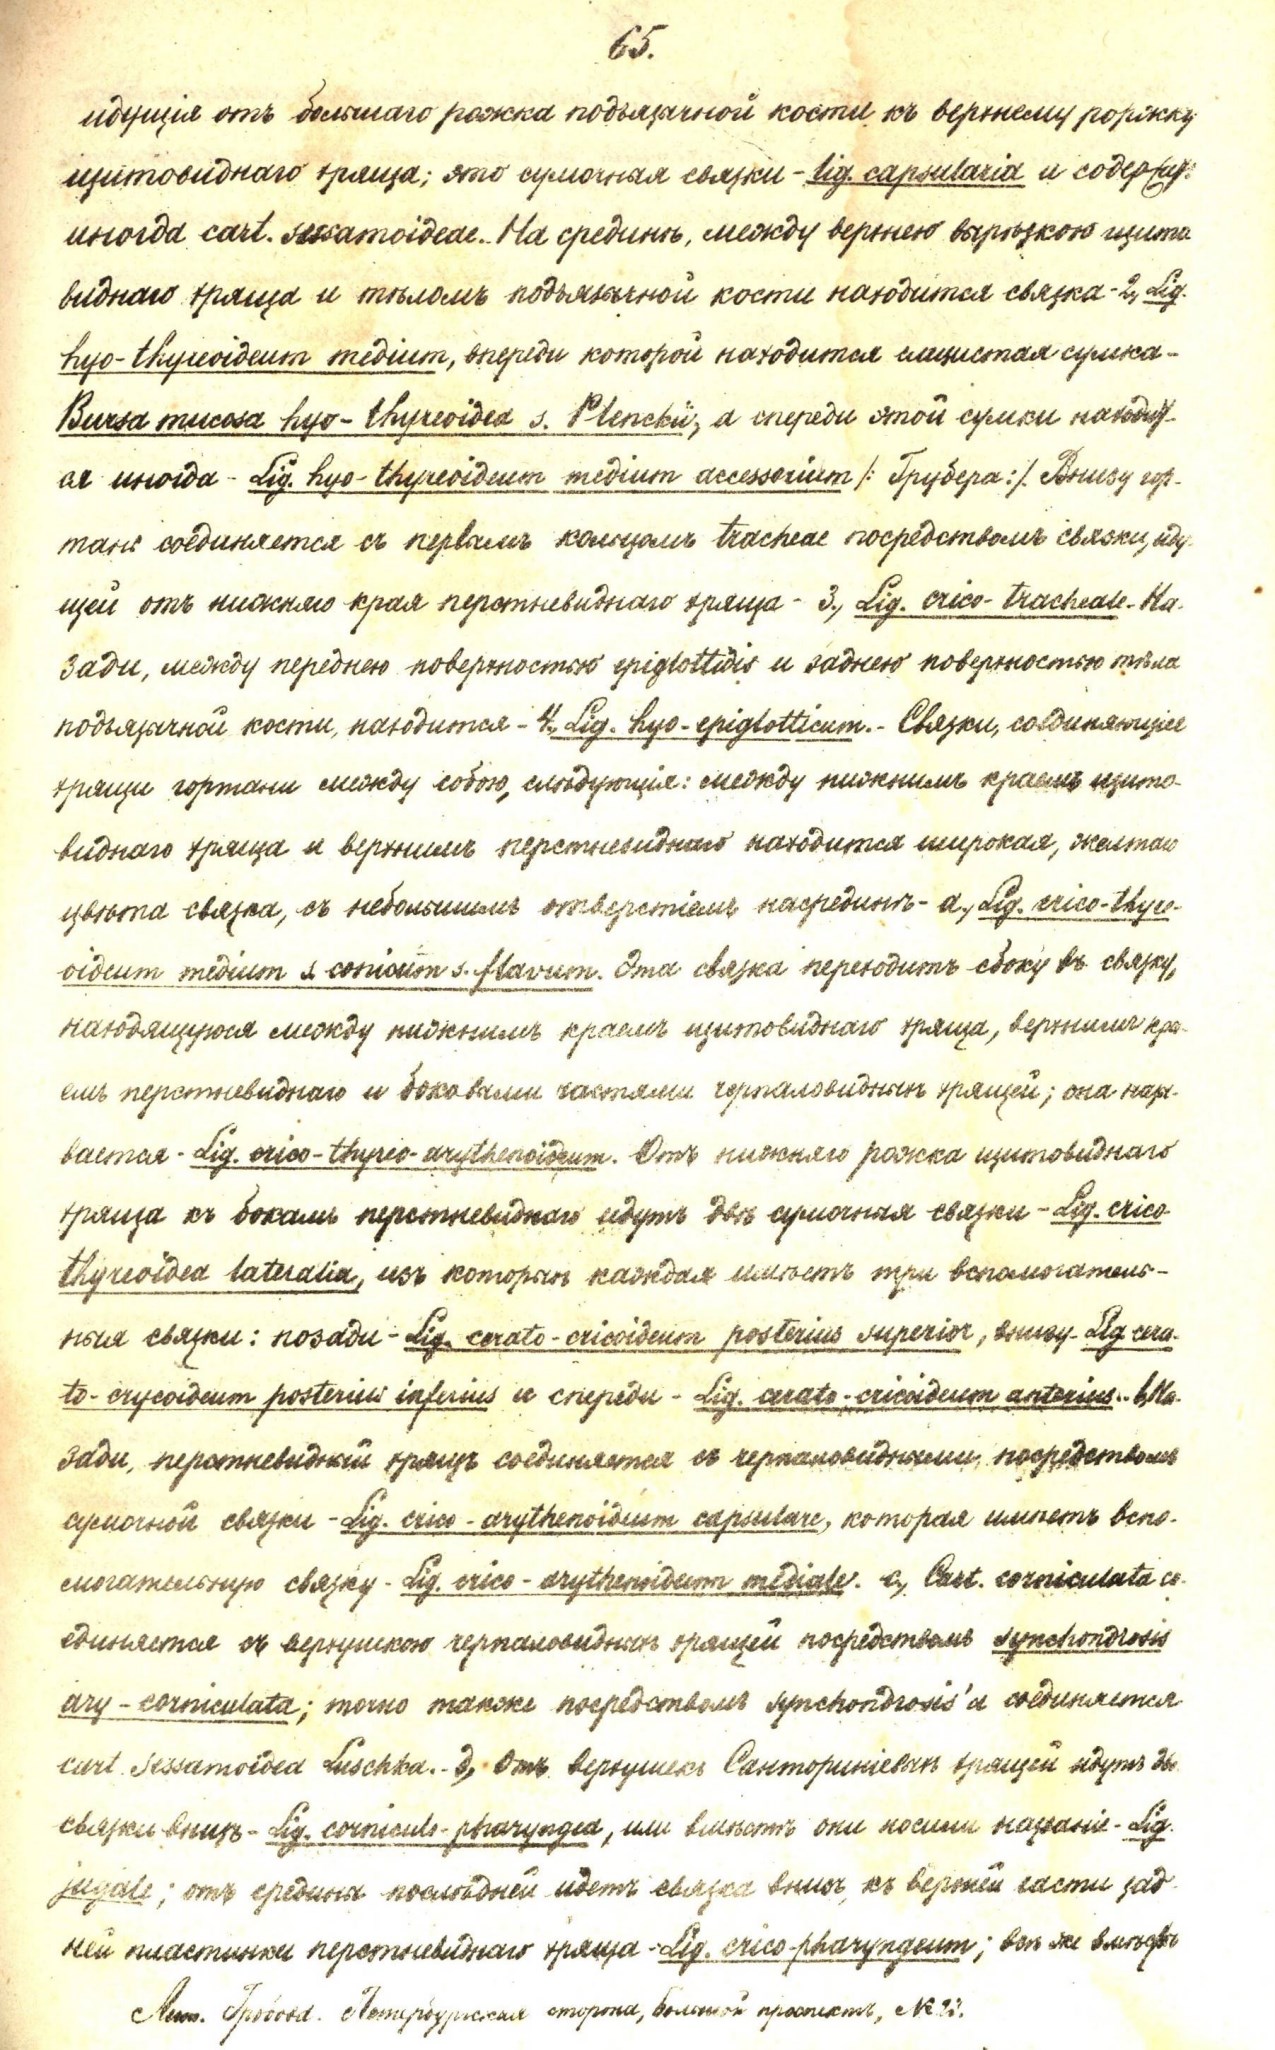 65.
идущія отъ большаго рожка подъязычной кости къ верхнему рожку
щитовиднаго хряща; это сумочная связки - lig. capsularia и содержитъ
иногда cart. sessamoideae. На срединѣ, между верхнею вырѣзкою щито
виднаго хряща и тѣломъ подъязычной кости находится связка - 2, Lig.
hyo-thyreoideum medium, впереди которой находится слизистая сумка -
Bursa mucosa hyo-thyreoidea s. Plenckii, а спереди этой сумки находит-
ся иногда - Lig. hyo-thyreoideum medium accessorium /: Грубера :/. Внизу гор-
тань соединяется съ первымъ кольцомъ tracheae посредствомъ связки, иду-
щей отъ нижняго края перстневиднаго хряща - 3, Lig. crico-tracheale. На-
зади, между переднею поверхностью epiglottidis и заднею поверхностью тѣла
подъязычной кости, находится - 4, Lig. hyo-epiglotticum. - Связки, соединяющіе
хрящи гортани между собою, слѣдующія: между нижнимъ краемъ щито-
виднаго хряща и верхнимъ перстневиднаго находится широкая, желтаго
цвѣта связка, съ небольшимъ отверстіемъ насрединѣ - a, Lig. crico-thyre-
oideum medium s. conicum s. flavum. Эта связка переходитъ сбоку въ связку,
находящуюся между нижнимъ краемъ щитовиднаго хряща, верхнимъ кра-
емъ перстневиднаго и боковыми частями черпаловидныхъ хрящей; она назы-
вается - Lig. crico-thyreo-arythenoideum. Отъ нижняго рожка щитовиднаго
хряща къ бокамъ перстневиднаго идутъ двѣ сумочная связки - Lig. crico
thyreoidea lateralia, изъ которыхъ каждая имѣетъ три вспомогатель-
ныя связки: позади - Lig. cerato-cricoideum posterius superior, внизу - Lig cera-
to-crycoideum posterius inferius и спереди - Lig. cerato-cricoideum anterius. - b, На-
зади, перстневидный хрящъ соединяется съ черпаловидными, посредствомъ
сумочной связки - Lig. crico-arythenoideum capsulare, которая имѣетъ вспо-
могательную связку - Lig. crico-arythenoideum mediale. c, Cart. corniculata со-
единяется съ верхушкою черпаловидныхъ хрящей посредствомъ synchondrosis
ary-corniculata; точно также посредствомъ synchondrosis'a соединяется
cart. sessamoidea Luschka. - d, Отъ верхушекъ Санториніевыхъ хрящей идутъ двѣ
связки внизъ - Lig. corniculo-pharyngea, или вмѣстѣ они носили названіе - Lig.
jugale; отъ средины послѣдней идетъ связка внизъ, къ верхней части зад-
ней пластинки перстневиднаго хряща - Lig. crico-pharyngeum; всѣ же вмѣстѣ
Лит. Гробова. Петербургская сторона, Большой проспектъ, №